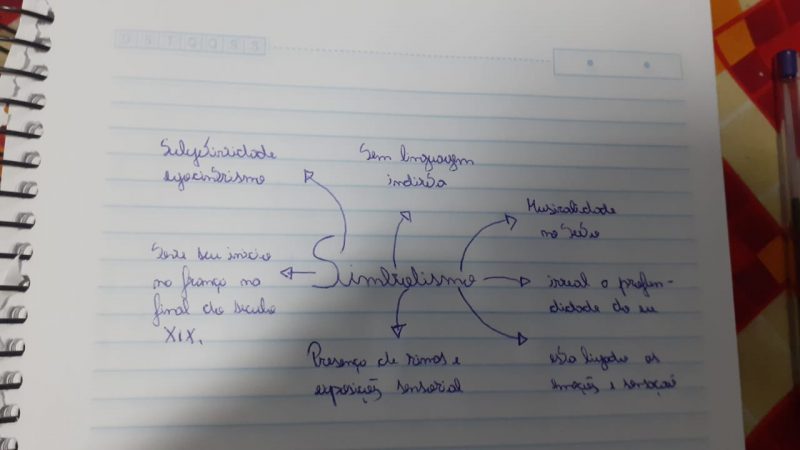 D S T Q Q S S
Subjetividade
egocentrismo
Tem linguagem
indireta
Musicalidade
no texto
Teve seu início
na frança no
final do século
XIX.
Simbolismo
irreal o profun-
didade do eu
Presença de rimas e
sensorial
estão ligado as
emoções e